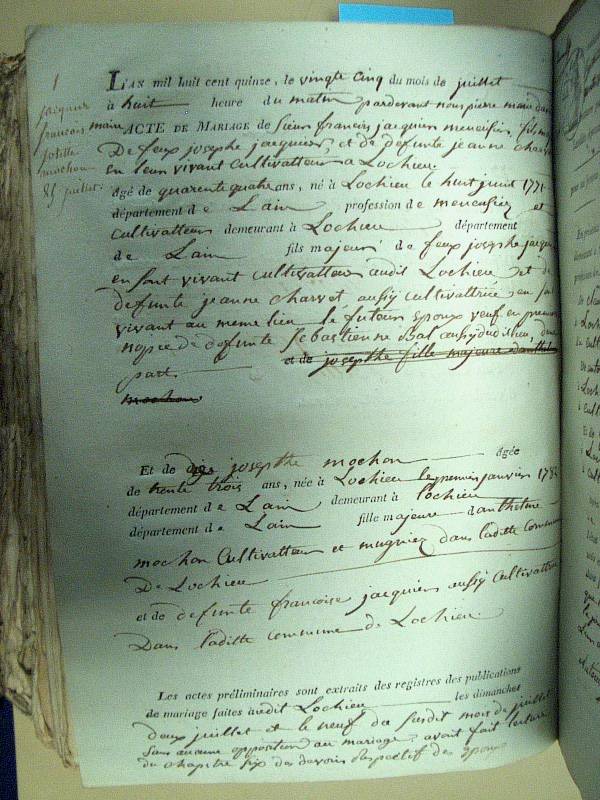 1
jacquier
françois
josette
mochon
25 juillet.
L'AN mil huit cent quinze, le vingt cinq du mois de juillet
à huit heure du matin pardevant nous pierre marie
maire ACTE DE MARIAGE de sieur francois jacquier menusier, fils
De feux josephe jacquier, et de defunte jeanne charvet
en leur vivant Cultivatteur a Lochieu.
âgé de quarente quatre ans, né à Lochieu le huit juint 1771
département de Lain profession de menusier et
Cultivatteur demeurant à Lochieu département
de Lain fils majeur de feux josephe jacquier
en sont vivant cultivatteur audit Lochieu et de
defunte jeanne charvet aussy cultivattrice en son
vivant au meme lieu le futeur epoux veuf en premier
nopce de defunte Sebastienne Bal aussy dudit lieu, d'une
part. et de josepthe fille majeure danthelme
mochon
Et de josepthe mochon âgée
de trente trois ans, née à Lochieu le premier janvier 1782
département de Lain demeurant à lochieu
département de Lain fille majeure danthelme
mochon Cultivatteur et mugnier dans laditte commune
De Lochieu
et de defunte francoise jacquier aussy Cultivattrice
Dans laditte commune de Lochieu.
Les actes préliminaires sont extraits des registres des publications
de mariage faites à udit Lochieu les dimanches
deux juillet et le neuf du susdit mois de juillet
sans aucune opposition au mariage, avoit fait lecture
du chapitre six des devoirs respectif des epoux